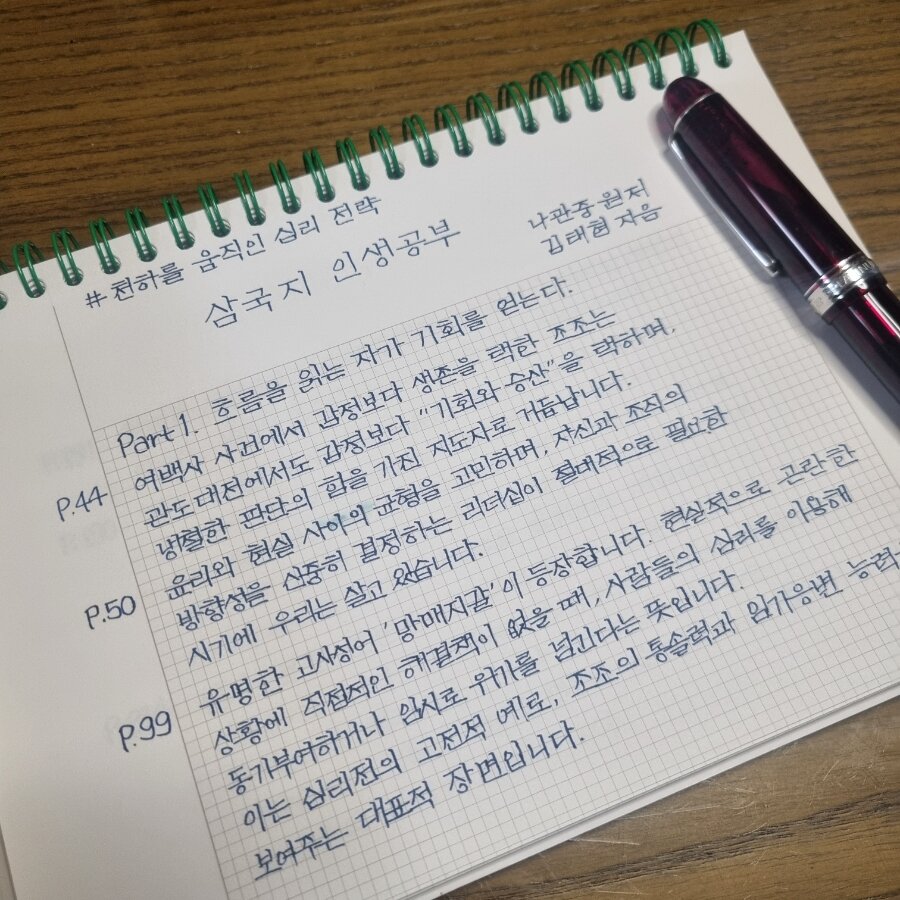 # 천하를 움직인 심리 전략
삼국지 인생공부
나관중 원저
김태현 지음
Part 1. 흐름을 읽는 자가 기회를 얻는다.
P.44 여백사 사건에서 감정보다 생존을 택한 조조는
관도대전에서도 감정보다 "기회와 승산"을 택하며,
냉철한 판단의 힘을 가진 지도자로 거듭납니다.
P.50 윤리와 현실 사이의 균형을 고민하며, 자신과 조직의
방향성을 신중히 결정하는 리더십이 절대적으로 필요한
시기에 우리는 살고 있습니다.
P.99 유명한 고사성어 '망매지갈'이 등장합니다. 현실적으로 곤란한
상황에 직접적인 해결책이 없을 때, 사람들의 심리를 이용해
동기부여하거나 임시로 위기를 넘긴다는 뜻입니다.
이는 심리전의 고전적 예로, 조조의 통솔력과 임기응변 능력을
보여주는 대표적 장면입니다.